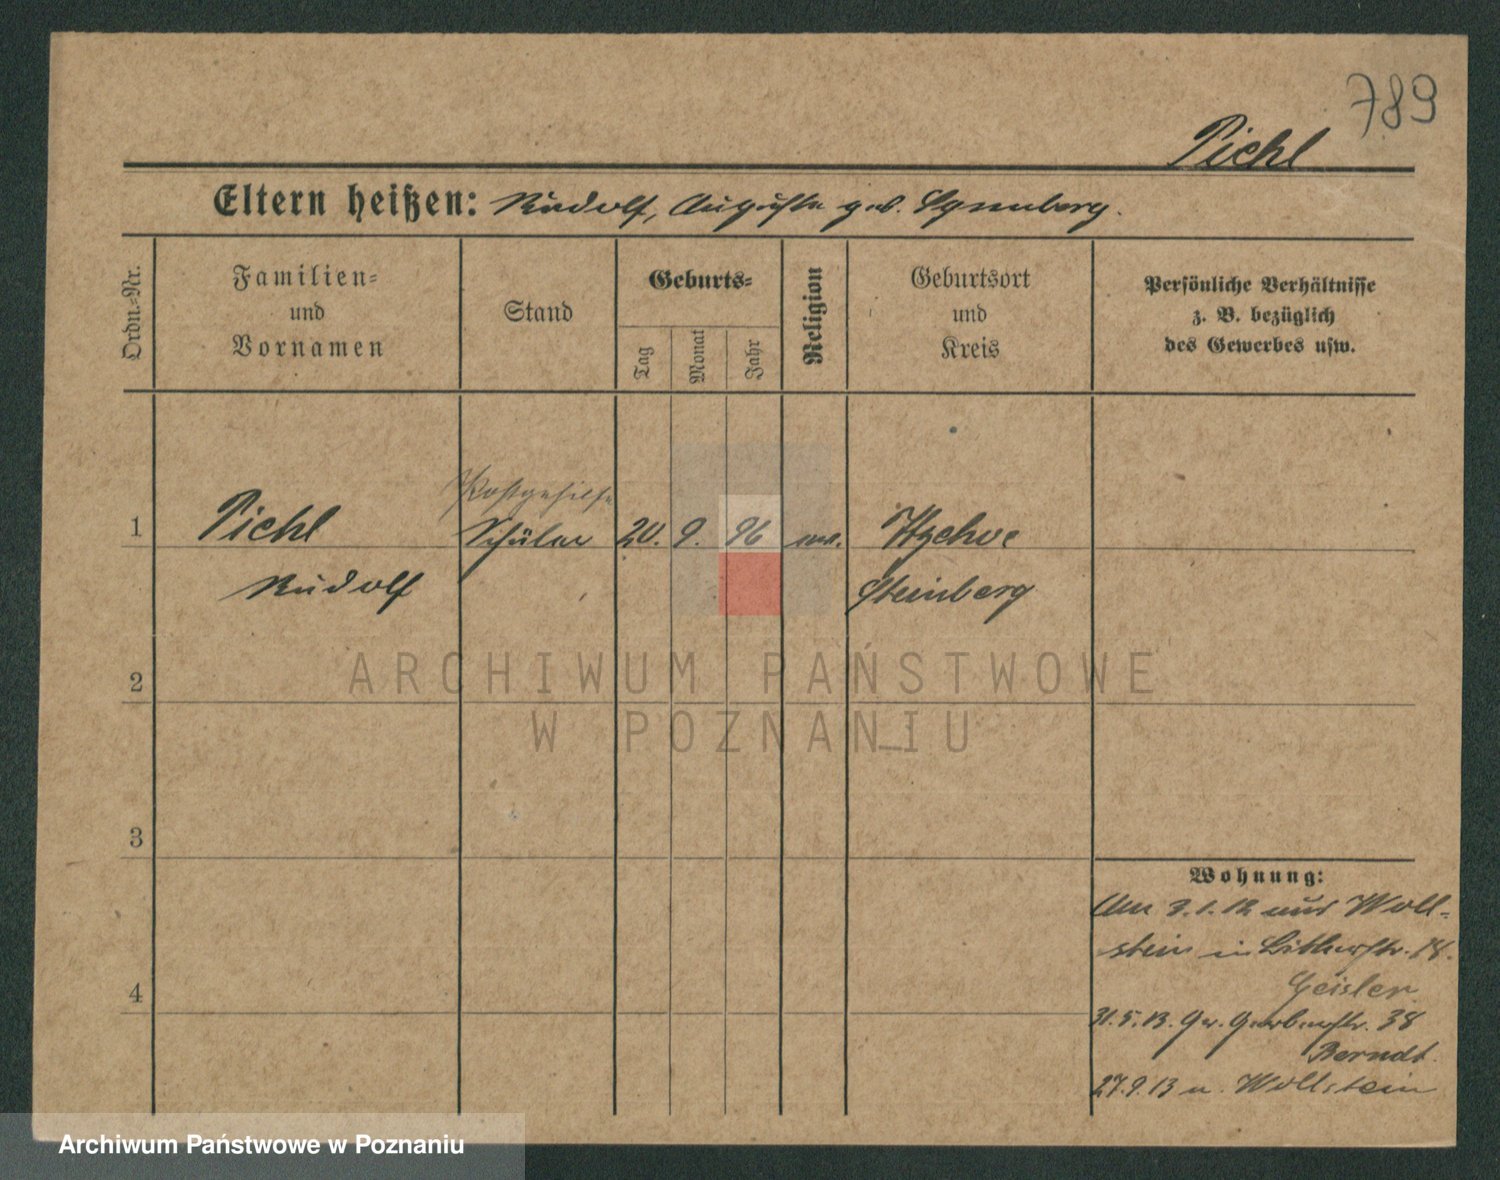 789
Pichl
Eltern heißen: Rudolf, Auguste geb.
Ordn.-Nr.
Familien-
und
Vornamen
Stand
Geburts-
Tag
Monat
Jahr
Religion
Geburtsort
und
Kreis
Persönliche Verhältnisse
z. B. bezüglich
des Gewerbes usw.
Postgehilfe
1 Pichl Schüler 20. 9. 96 ev. Itzehoe
Rudolf Steinberg
2
ARCHIWUM PAŃSTWOWE
W POZNANIU
3
Wohnung:
Am 3.1.12 aus Woll-
stein in
Geisler
4
31.5.13. Gr. Gerberstr. 38
Berndt.
27.9.13 n. Wollstein
Archiwum Państwowe w Poznaniu